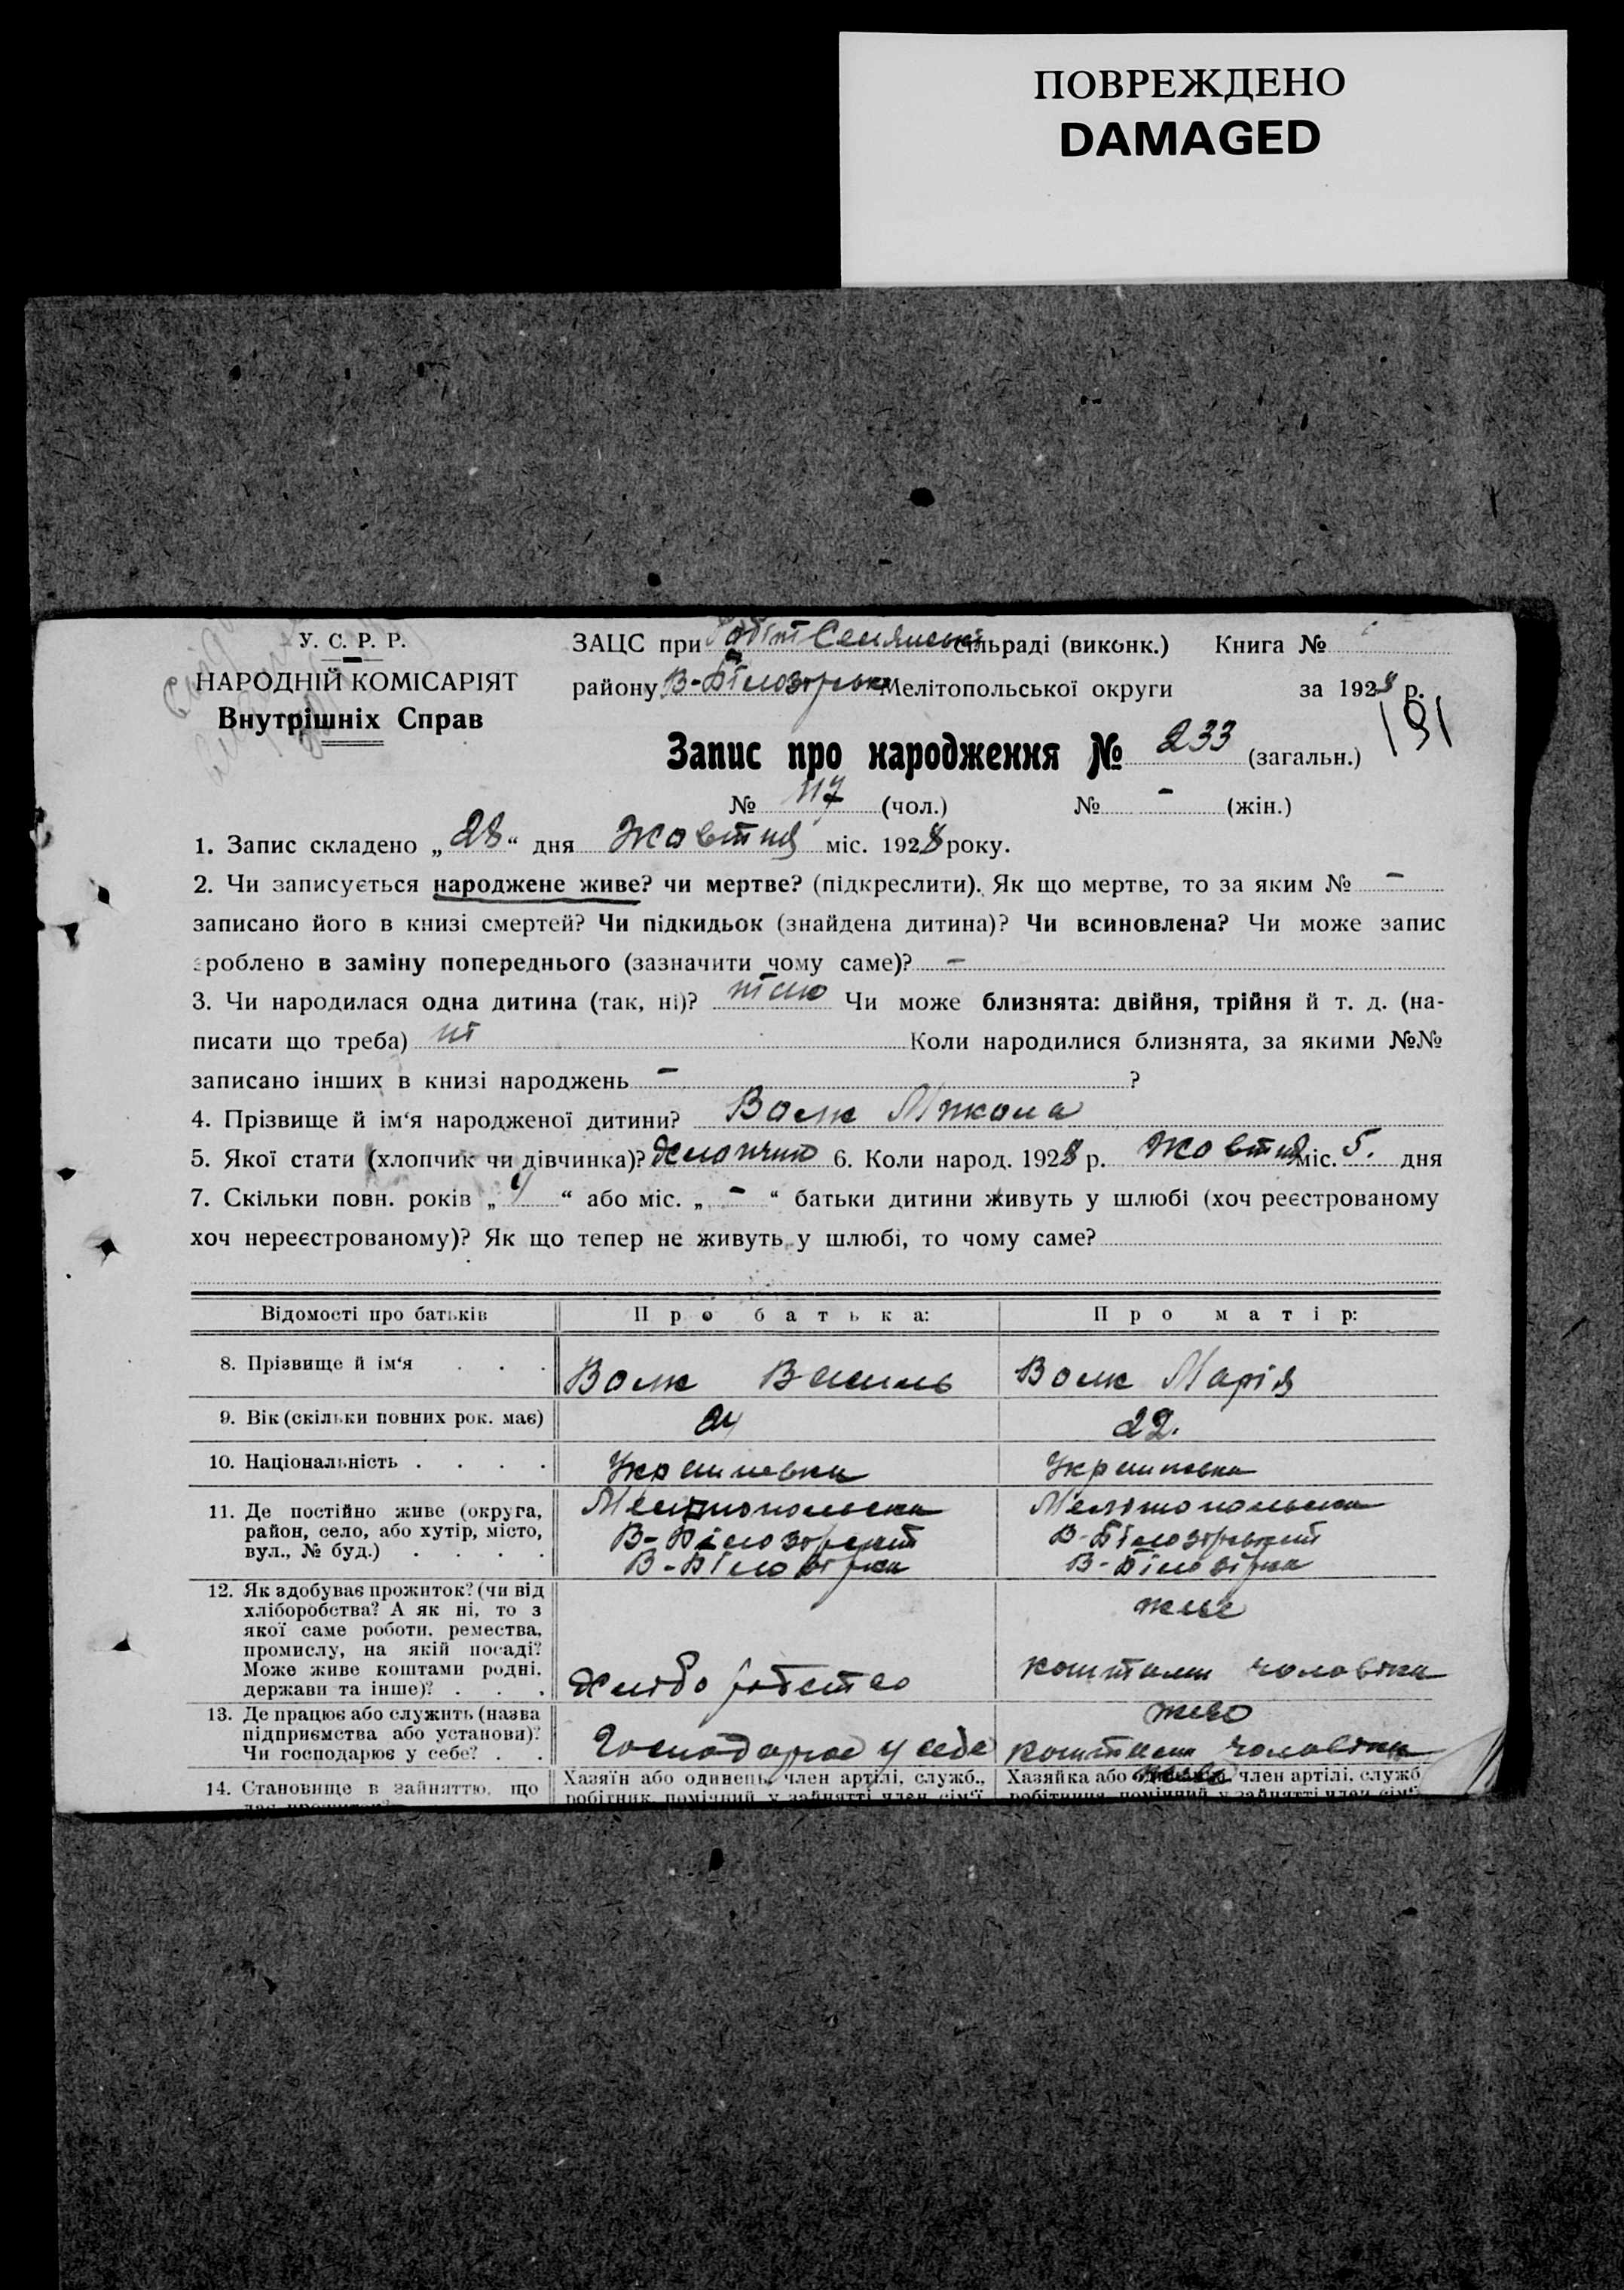 ПОВРЕЖДЕНО
DAMAGED
У. С. Р. Р.
НАРОДНІЙ КОМІСАРІЯТ
Внутрішніх Справ
ЗАЦС при Робіт Селянські сільраді (виконк.) Книга №
району В-Білозірськ Мелітопольської округи за 1928 р.
191
Запис про народження № 233 (загальн.)
№ 117 (чол.) № - (жін.)
1. Запис складено „28“ дня Жовтня міс. 1928 року.
2. Чи записується народжене живе? чи мертве? (підкреслити). Як що мертве, то за яким № -
записано його в книзі смертей? Чи підкидьок (знайдена дитина)? Чи всиновлена? Чи може запис
зроблено в заміну попереднього (зазначити чому саме)? -
3. Чи народилася одна дитина (так, ні)? Чи може близнята: двійня, трійня й т. д. (на-
писати що треба) ні Коли народилися близнята, за якими №№
записано інших в книзі народжень - ?
4. Прізвище й ім‘я народженої дитини? Вовк Микола
5. Якої стати (хлопчик чи дівчинка)? Хлопчик 6. Коли народ. 1928 р. Жовтня міс. 5. дня
7. Скільки повн. років „ “ або міс. „ - “ батьки дитини живуть у шлюбі (хоч реєстрованому
хоч нереєстрованому)? Як що тепер не живуть у шлюбі, то чому саме?
Відомості про батьків Про батька: Про матір:
8. Прізвище й ім‘я . . . Вовк Василь Вовк Марія
9. Вік (скільки повних рок. має) 24 22.
10. Національність . . . . Українська Українська
11. Де постійно живе (округа, Мелітопольська Мелітопольська
район, село, або хутір, місто, В-Білозірський В-Білозірський
вул., № буд.) . . . . В-Білозірка В-Білозірка
12. Як здобуває прожиток? (чи від
хліборобства? А як ні, то з живе
якої саме роботи, ремества,
промислу, на якій посаді?
Може живе коштами родні, коштами чоловіка
держави та інше)? . . . Хліборобство
13. Де працює або служить (назва живе
підприємства або установи)?
Чи господарює у себе? . . Господарює у себе коштами чоловіка
14. Становище в зайняттю, що Хазяїн або одинець, член артілі, служб., Хазяйка або член артілі, служб
дає прожиток? робітник, помічний у зайнятті член сім‘ї робітниця, помічний у зайнятті член сім‘ї